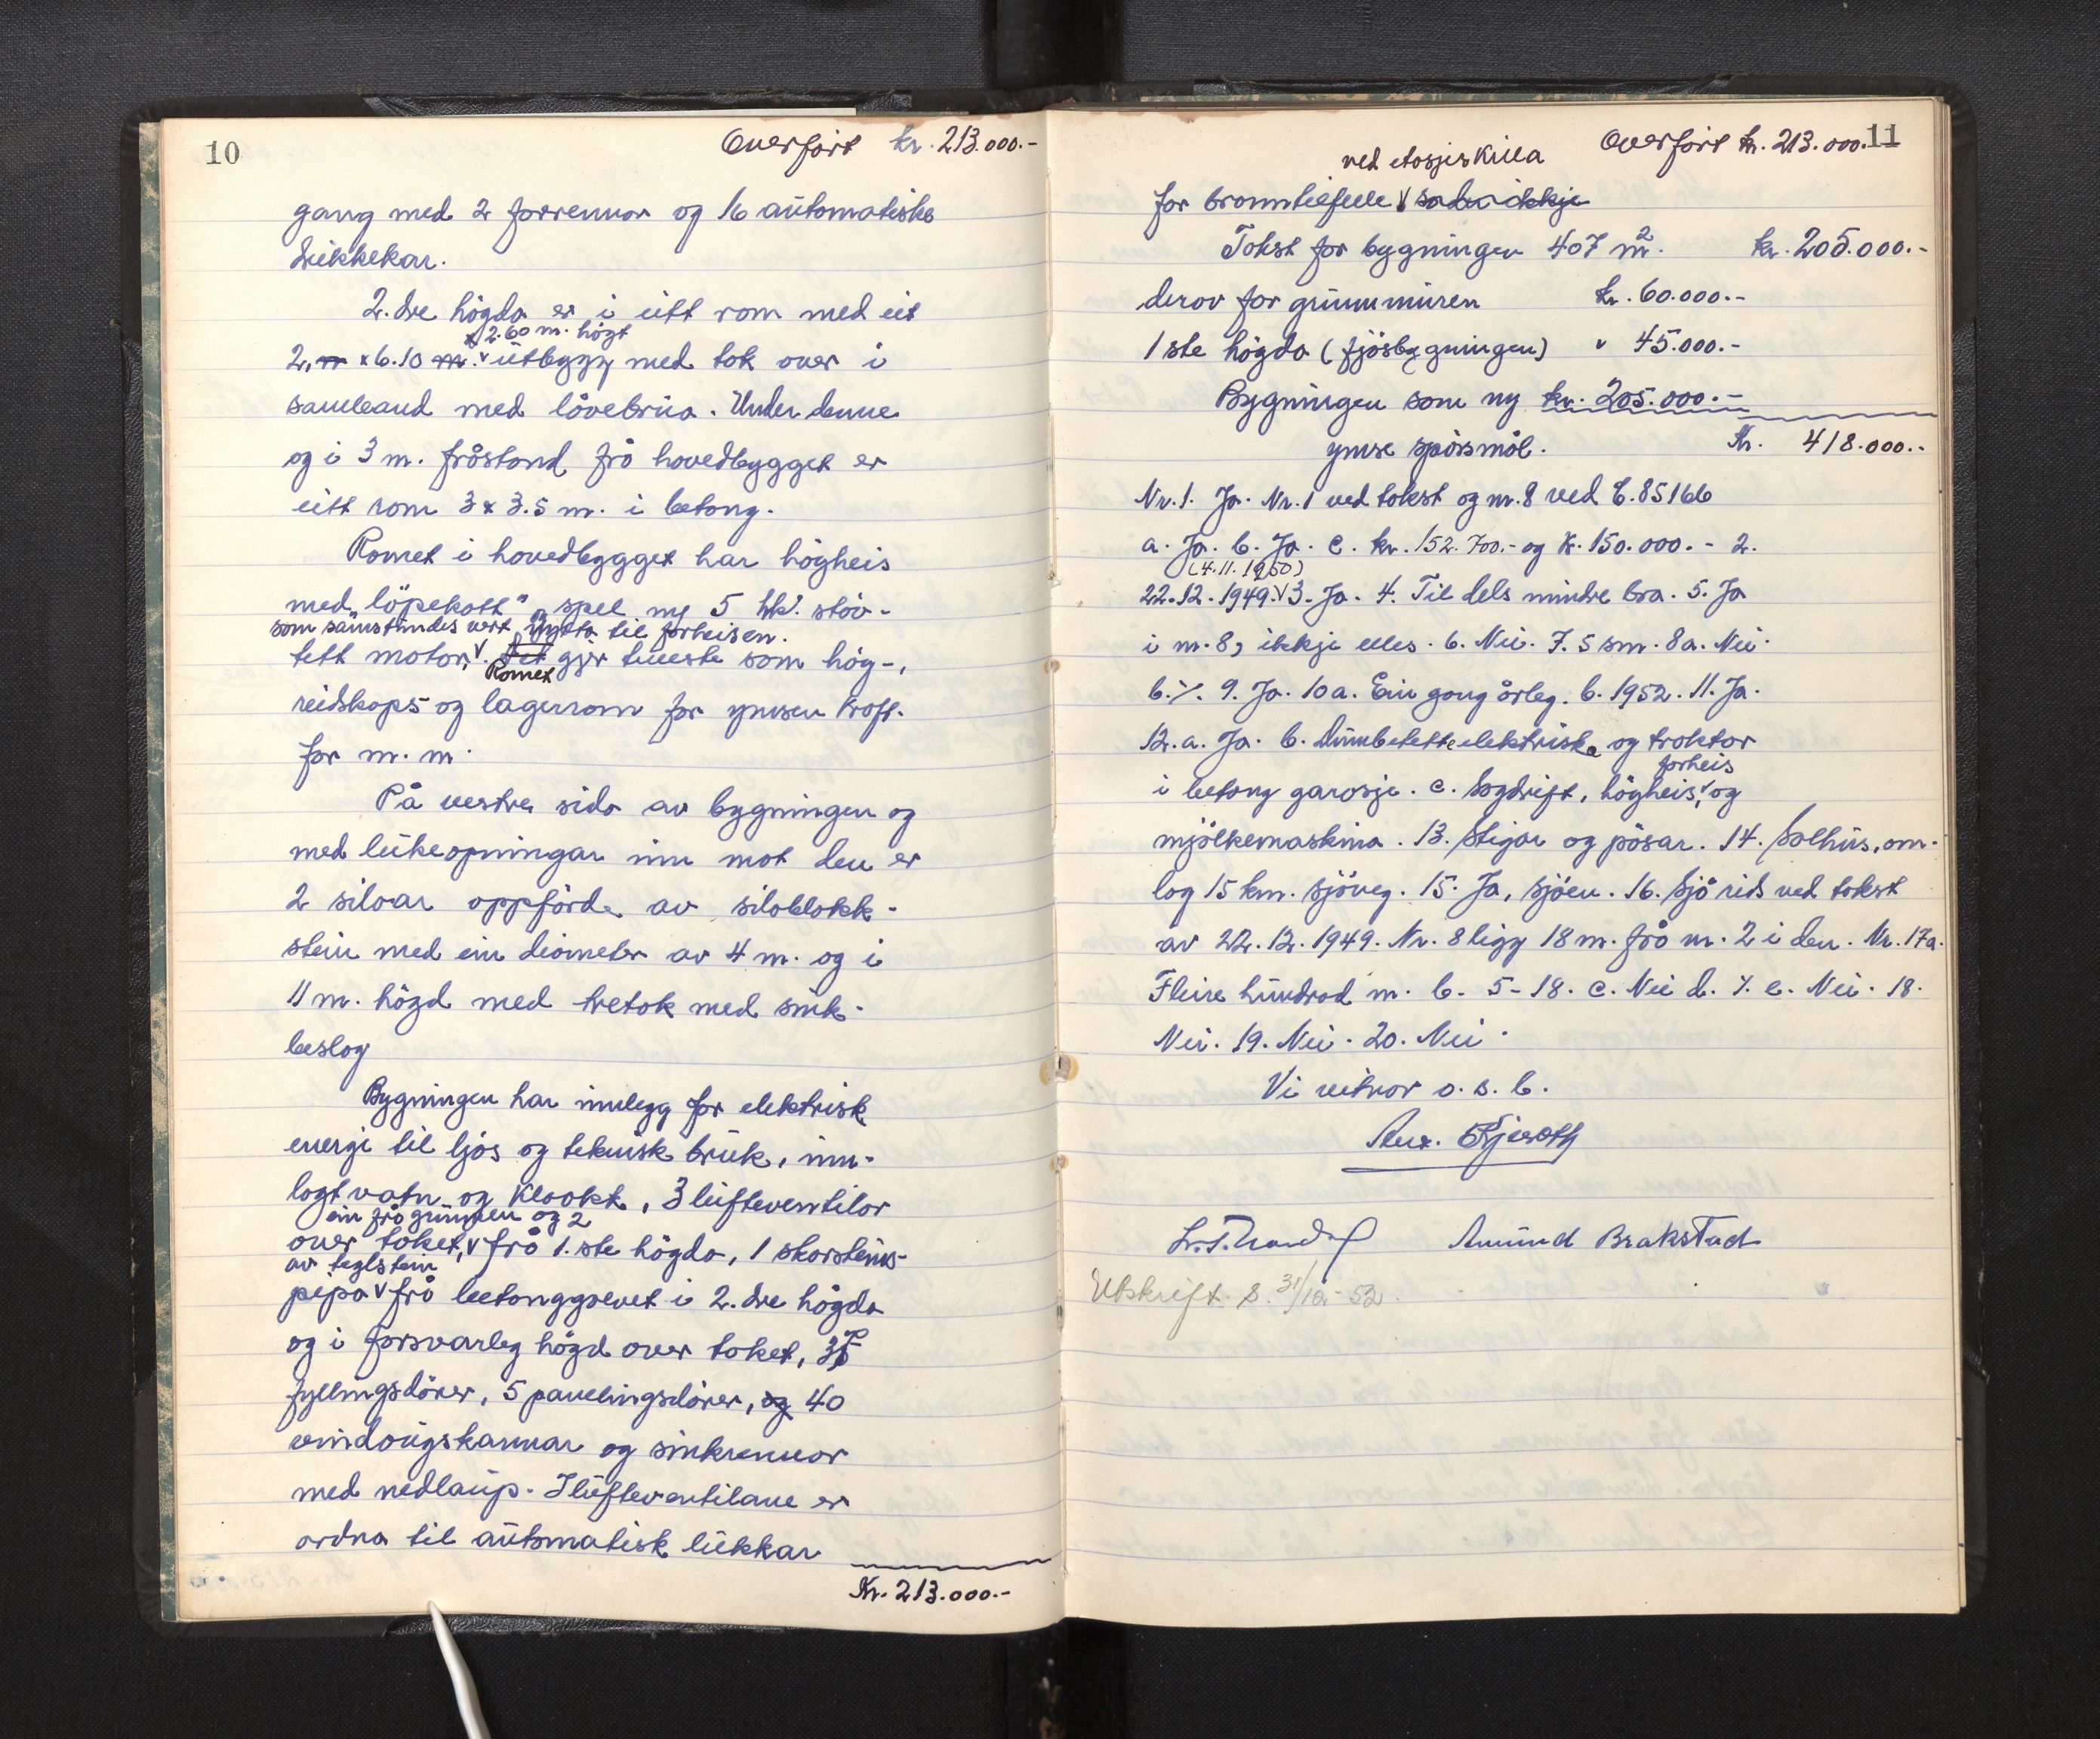 10
Overført kr. 213.000.-
gang med 2 forrennor og 16 automatiske
drikkekar.
2. dre högda er i eitt rom med eit
x 2.60 m. högt
2, m x 6.10 m. v utbygg med tak over i
samband med låvebrua. Under denne
og i 3 m. fråstand frå hovedbygget er
eitt rom 3 x 3.5 m. i betong.
Romet i hovedbygget har högheis
med "löpekatt" spel og 5 hk. støv-
som samstundes vert nytta til forheisen.
tett motor, v. Det gjer teneste som høg-,
Romet
reidskaps- og lagerrom for ymsen kraft-
for m. m.
På vestre sida av bygningen og
med lukeopningar inn mot den er
2 siloar oppförde av siloblokk-
stein med ein diameter av 4 m. og i
11 m. högd med tretak med sink-
beslag
Bygningen har innlegg for elektrisk
energi til ljos og teknisk bruk, inn-
lagt vatn og kloakk, 3 lufteventilar
ein frå grunnen og 2
over taket, v frå 1. ste högda, 1 skorsteins-
av teglstein
pipa v frå betonggolvet i 2. dre högda
og i forsvarleg högd over taket,
fyllingsdörer, 5 panelingsdörer, og 40
vindaugskarmar og sinkrennor
med nedlaup. I lufteventilane er
ordna til automatisk lukkar
Kr. 213.000.-
11
Overført kr. 213.000.-
ved etasjeskilla
for branntilfelle v
Takst for bygningen 407 m2. kr. 205.000.-
derav for grunnmuren kr. 60.000.-
1 ste högda (fjösbygningen) " 45.000.-
Bygningen som ny kr. 205.000.-
ymse spörsmål. Kr. 418.000.-
Nr. 1. Ja. Nr. 1 ved takst og nr. 8 ved b. 85166
a. Ja. b. Ja. c. kr. 152.700.- og k. 150.000.- 2.
(4.11.1950)
22.12.1949. v 3. Ja. 4. Til dels mindre bra. 5. Ja
i nr. 8, ikkje elles. 6. Nei. 7. 5 sm. 8a. Nei.
b. ⁒. 9. Ja. 10a. Ein gong årleg. b. 1952. 11. Ja.
12. a. Ja. b. Dunbetette elektriske og traktor
forheis
i betong garasje. c. Sagdrift, högheis, v og
mjölkemaskina. 13. Stigar og pösar. 14. Solhus, om-
lag 15 km. sjöveg. 15. Ja, sjöen. 16. Sjå rids ved takst
av 22.12.1949. Nr. 8 ligg 18 m. frå nr. 2 i den. Nr. 17a.
Fleire hundrad m. b. 5-18. c. Nei d. ⁒. e. Nei. 18.
Nei. 19. Nei. 20. Nei.
Vi vitnar o. s. b.
Amund Brakstad
Utskrift s. 31/10-52.